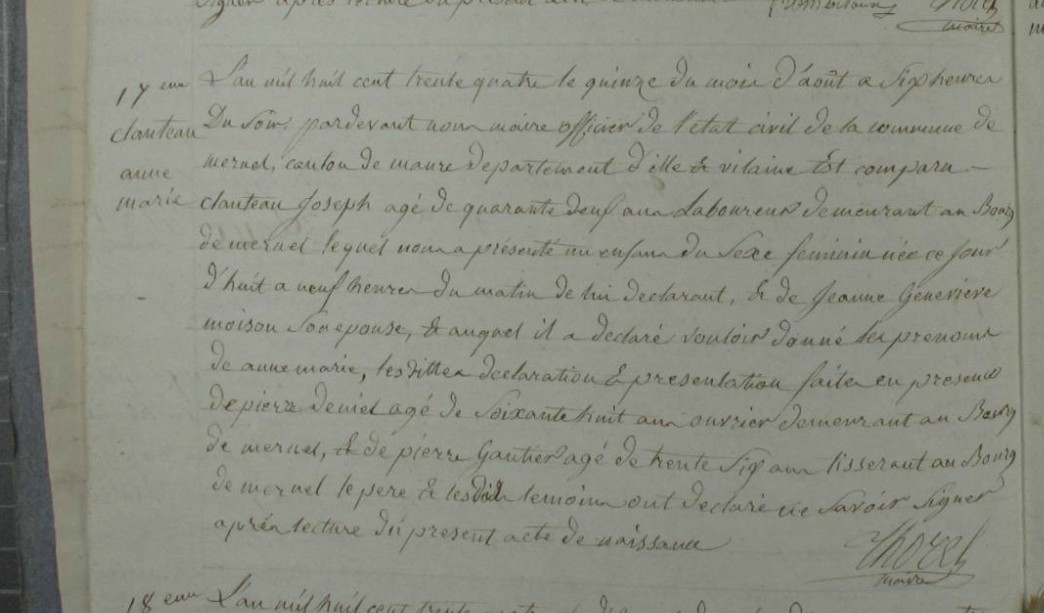 signer après lecture du présent acte
maire
17 eme
clauteau
anne
marie
L'an mil huit cent trente quatre le quinze du mois d'août a six heures
Du Soir, pardevant nous maire officier de l'état civil de la commune de
mernel, canton de maure departement d'ille & vilaine Est comparu -
clauteau Joseph agé de quarante deux ans Laboureur demeurant au Bourg
de mernel lequel nous a présenté un enfans du Sexe feminin née ce jour
d'huit a neuf heures du matin de lui declarant, & de Jeanne Genevieve
moison Son epouse, & auquel il a declaré vouloir donné les prenoms
de anne marie, les dittes declaration & presentation faites en presence
de pierre deniel agé de Soixante huit ans ouvrier demeurant au Bourg
de mernel, & de pierre Gautier agé de trente Six ans tisserant au Bourg
de mernel le pere & les dits temoins ont declaré ne Savoir Signer
après lecture du present acte de naissance
maire
18 eme
L'an mil huit cent trente